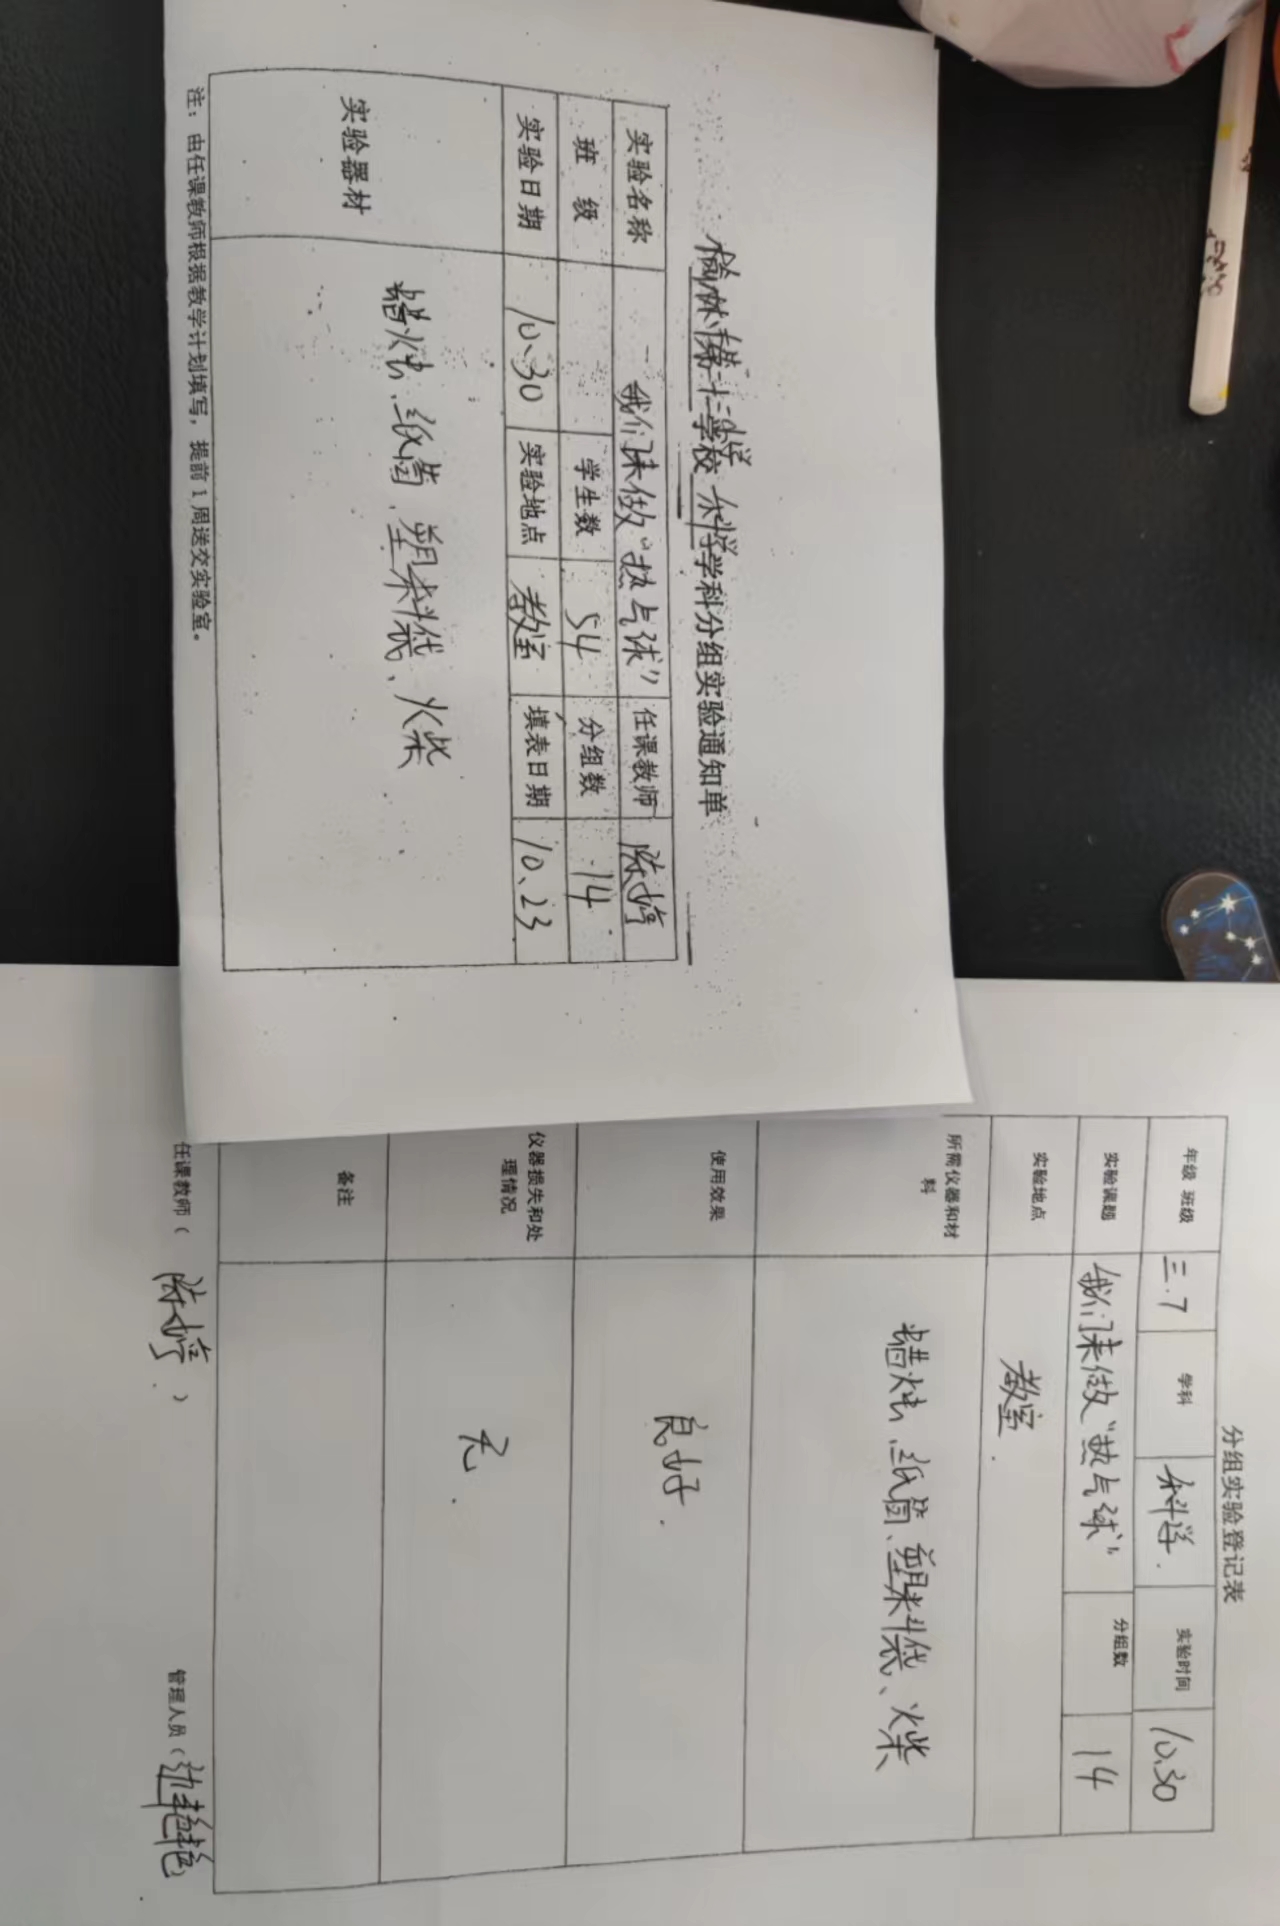 榆林市第十二小学学校 科学学科分组实验通知单
实验名称 我们来做“热气球” 任课教师 陈婷
班 级 学生数 54 分组数 14
实验日期 10、30 实验地点 教室 填表日期 10、23
实验器材 蜡烛、纸筒、塑料袋、火柴
注：由任课教师根据教学计划填写，提前1周送交实验室。
分组实验登记表
年级 班级 三.7 学科 科学. 实验时间 10.30
实验课题 我们来做“热气球” 分组数 14
实验地点 教室.
所需仪器和材
料 蜡烛、纸筒、塑料袋、火柴
使用效果 良好.
仪器损失和处
理情况 无.
备注
任课教师（陈婷） 管理人员（艳艳）